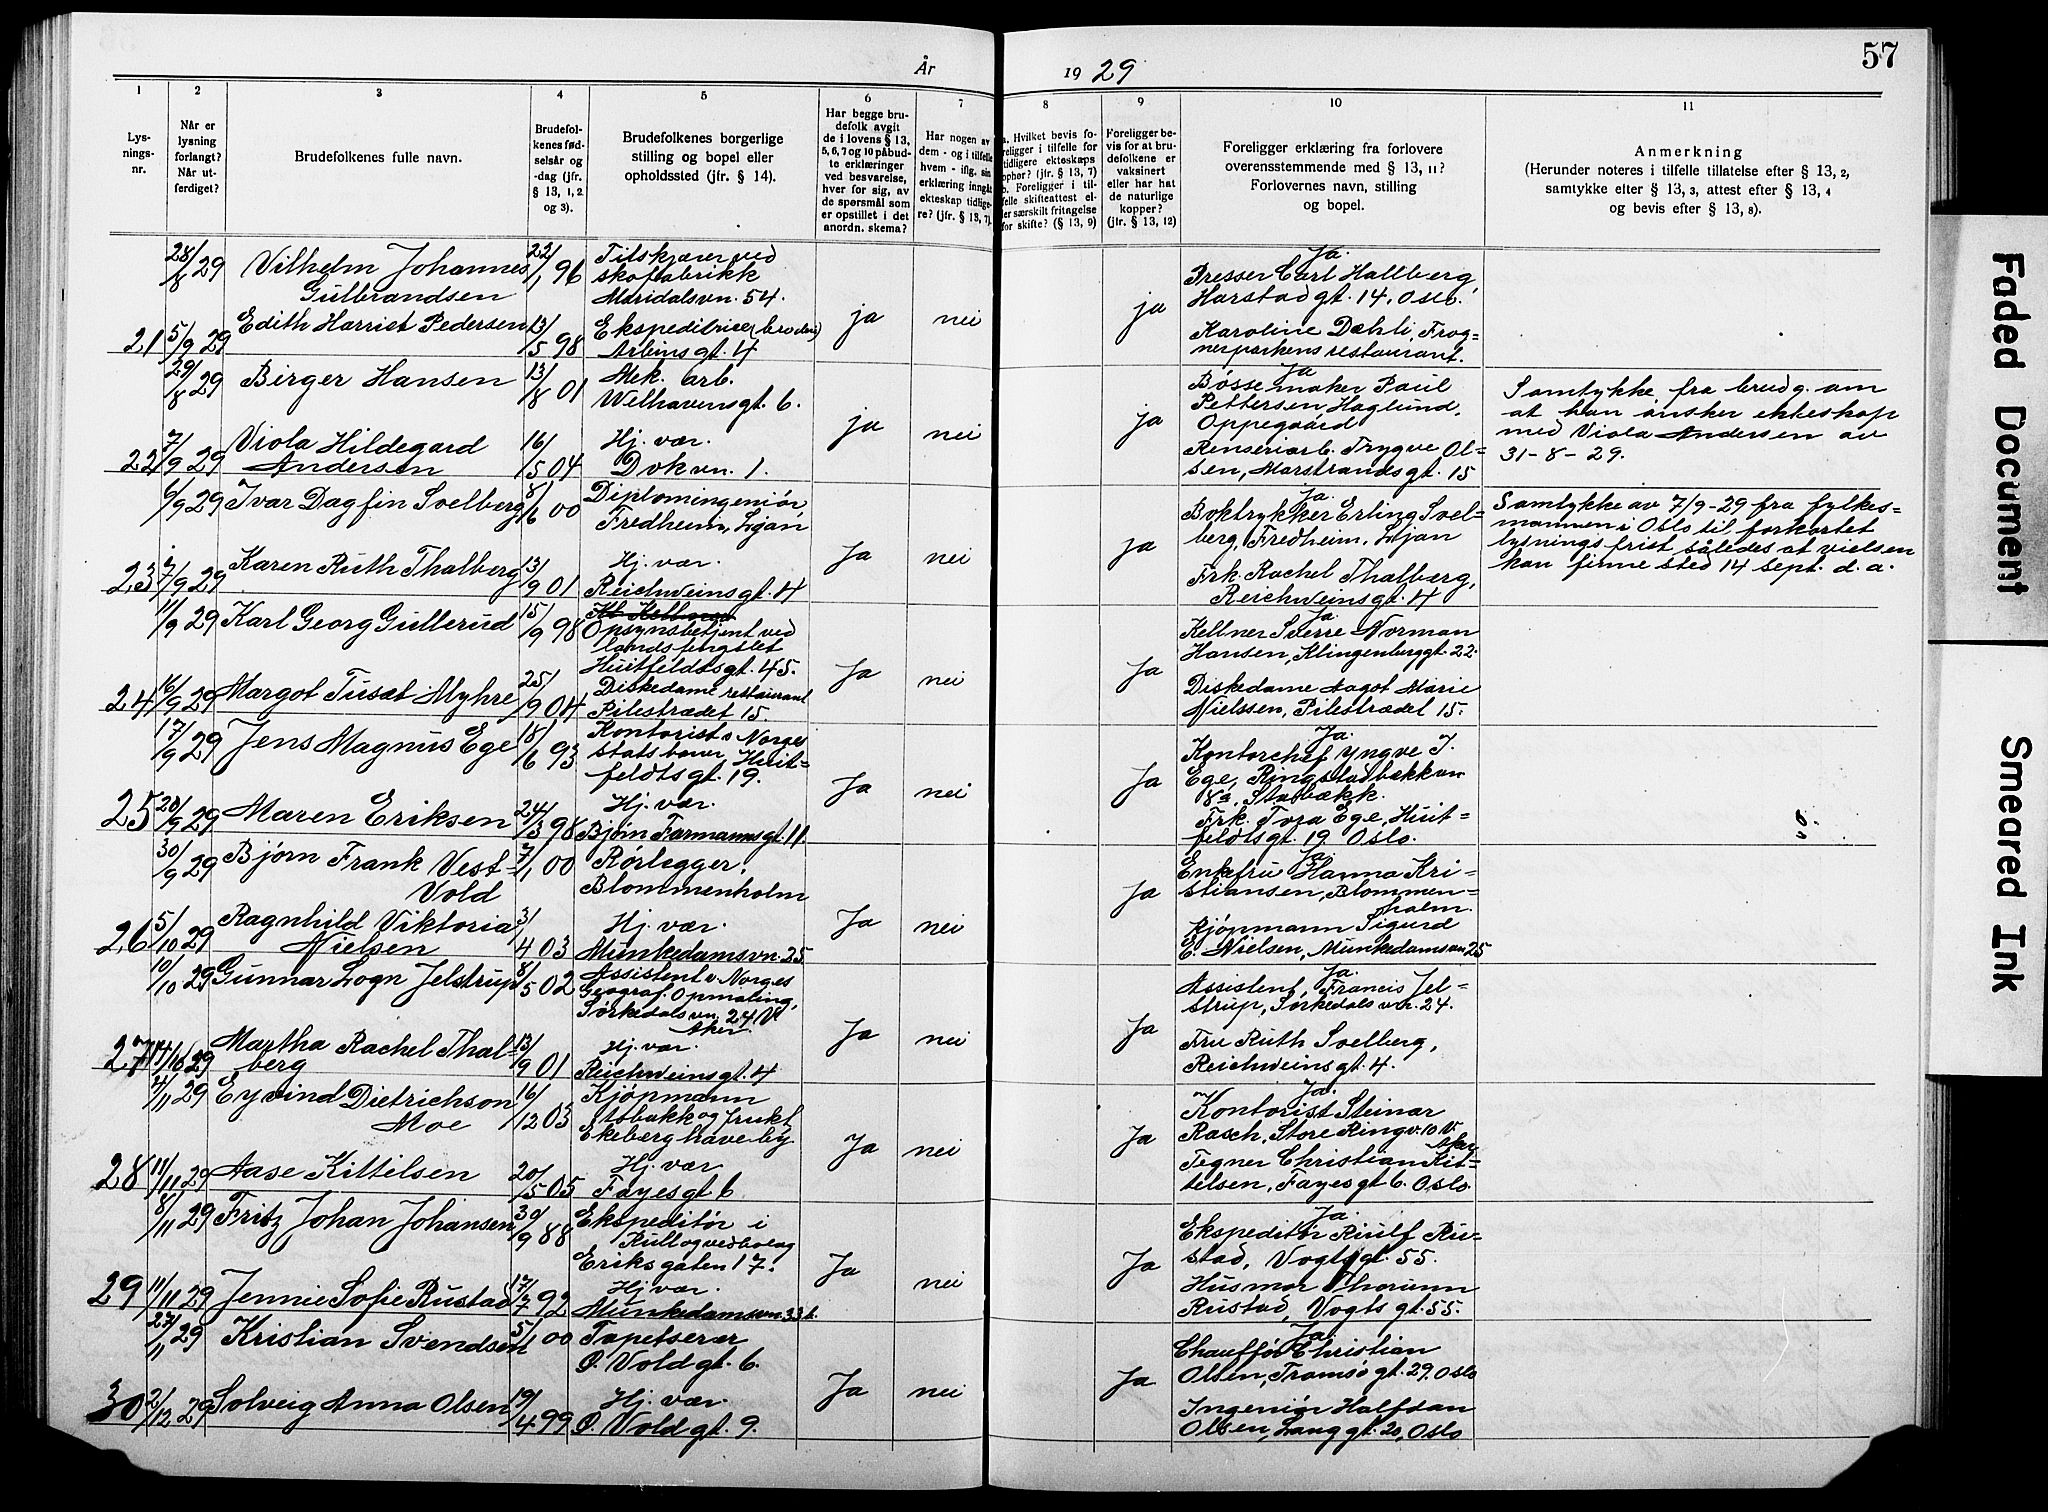 57
År 1929
1
2
3
4
5
6
7
8
9
10
11
Lys-
nings-
nr.
Når er
lysning
forlangt?
Når ut-
ferdiget?
Brudefolkenes fulle navn.
Brudefol-
kenes fød-
selsår og
-dag (jfr.
§ 13, 1, 2
og 3).
Brudefolkenes borgerlige
stilling og bopel eller
opholdssted (jfr. § 14).
Har begge bru-
defolk avgit
de i lovens § 13,
5, 6, 7 og 10 påbud-
te erklæringer
ved besvarelse,
hver for sig, av
de spørsmål som
er opstillet i det
anordn. skema?
Har nogen av
dem - og i tilfelle
hvem - iflg. sin
erklæring inngått
ekteskap tidlige-
re? (jfr. § 13, 7).
a. Hvilket bevis fo-
religger i tilfelle for
tidligere ekteskaps
ophør? (jfr. § 13, 7)
b. Foreligger i til-
felle skifteattest el-
ler særskilt fritagelse
for skifte? (§ 13, 9)
Foreligger be-
vis for at bru-
defolkene er
vaksinert
eller har hat
de naturlige
kopper?
(jfr. § 13, 12)
Foreligger erklæring fra forlovere
overensstemmende med § 13, 11?
Forlovernes navn, stilling
og bopel.
Anmerkning
(Herunder noteres i tilfelle tillatelse efter § 13, 2,
samtykke efter § 13, 3, attest efter § 13, 4
og bevis efter § 13, 8).
21
28/8 29
5/9 29
Vilhelm Johannes
Gulbrandsen
Edith Harriet Pedersen
22/1 96
13/5 98
Tilskjærer ved
skofabrikk
Maridalsvn. 54.
Ekspeditrice (broderi)
Arbinsgt. 4
ja
nei
ja
Ja.
Presser Carl Hallberg,
Harstadgt. 14, Oslo.
Karoline Dæhli, Frog-
nerparkens restaurant.
22
29/8 29
7/9 29
Birger Hansen
Viola Hildegard
Andersen
13/8 01
16/5 04
Mek. arb.
Welhavensgt. 6.
Hj. vær.
Dokvn. 1.
ja
nei
ja
Ja
Bøssemaker Paul
Pettersen, Haglund,
Oppegaard
Renseriarb. Trygve Ol-
sen, Marstrandsgt. 15
Samtykke fra brudg. om
at han ønsker ekteskap
med Viola Andersen av
31-8-29.
23
6/9 29
7/9 29
Ivar Dagfin Svelberg
Karen Ruth Thalberg
8/6 00
13/9 01
Diplomingeniør,
Fredheim, Ljan
Hj. vær.
Reichweinsgt. 4
Ja
nei
ja
Ja.
Boktrykker Erling Svel-
berg, Fredheim, Ljan
Frk. Rachel Thalberg,
Reichweinsgt. 4
Samtykke av 7/9-29 fra fylkes-
mannen i Oslo til forkortet
lysningsfrist således at vielsen
kan finne sted 14 sept. d. a.
24
11/9 29
16/9 29
Karl Georg Gullerud
Margot Tusat Myhre
15/9 98
25/9 04
Opsynsbetjent ved
landsfengslet
Huitfeldtsgt. 45.
Diskedame restaurant
Pilestrædet 15.
Ja
nei
Ja
Ja
Kellner Sverre Norman
Hansen, Klingenberggt. 22.
Diskedame Aagot Marie
Nielssen, Pilestrædet 15.
25
17/9 29
20/9 29
Jens Magnus Ege
Maren Eriksen
18/6 93
24/3 98
Kontorist v. Norges
statsbaner, Huit-
feldtsgt. 19.
Hj. vær.
Bjørn Farmannsgt. 11.
Ja
nei
Ja
Ja.
Kontorchef Yngve J.
Ege, Ringstadbækkvn
18a, Stabækk.
Frk. Tora Ege, Huit-
feldtsgt. 19 Oslo.
26
30/9 29
5/10 29
Bjørn Frank Vest-
Vold
Ragnhild Viktoria
Nielsen
7/1 00
3/4 03
Rørlegger,
Blommenholm
Hj. vær.
Munkedamsvn. 25
Ja
nei
Ja
Ja
Enkefru Hanna Kri-
stiansen, Blommen-
holm.
Kjøpmann Sigurd
E. Nielsen, Munkedamsvn 25
27
10/10 29
14/10 29
Gunnar Logn Jelstrup
Martha Rachel Thal-
berg
8/5 02
13/9 01
Assistent v. Norges
Geograf. Opmaling,
Sørkedalsvn. 24, V.
Aker.
Hj. vær.
Reichweinsgt. 4
Ja
nei
Ja
Ja.
Assistent, Francis Jel-
strup, Sørkedalsvn. 24.
Fru Ruth Svelberg,
Reichweinsgt. 4.
28
4/11 29
11/11 29
Eyvind Dietrichson
Moe
Aase Kittelsen
16/12 03
20/5 05
Kjøpmann
i tobakk og frukt
Ekeberg haveby.
Hj. vær
Fayesgt. 6
Ja
nei
Ja
Ja.
Kontorist Steinar
Rasch, Store Ringv. 10 V.
Aker
Tegner Christian Kit-
telsen, Fayesgt 6. Oslo.
29
8/11 29
11/11 29
Fritz Johan Johansen
Jennie Sofie Rustad
30/9 88
17/7 92
Ekspeditør i
Kull og vedbolag
Eriksgaten 17.
Hj. vær.
Munkedamsvn. 33 b.
Ja
nei
Ja
Ja.
Ekspeditør Riulf Ru-
stad, Vogtsgt. 55.
Husmor Thorunn
Rustad, Vogts gt. 55.
30
27/11 29
2/12 29
Kristian Svendsen
Solveig Anna Olsen
5/1 00
19/4 99
Tapetserer
Ø. Voldgt. 6.
Hj. vær.
Ø. Voldgt. 9.
Ja
nei
Ja
Ja.
Chauffør Christian
Olsen, Tromsøgt. 29, Oslo
Ingeniør Halfdan
Olsen, Langgt. 20, Oslo
Faded Document
Smeared Ink